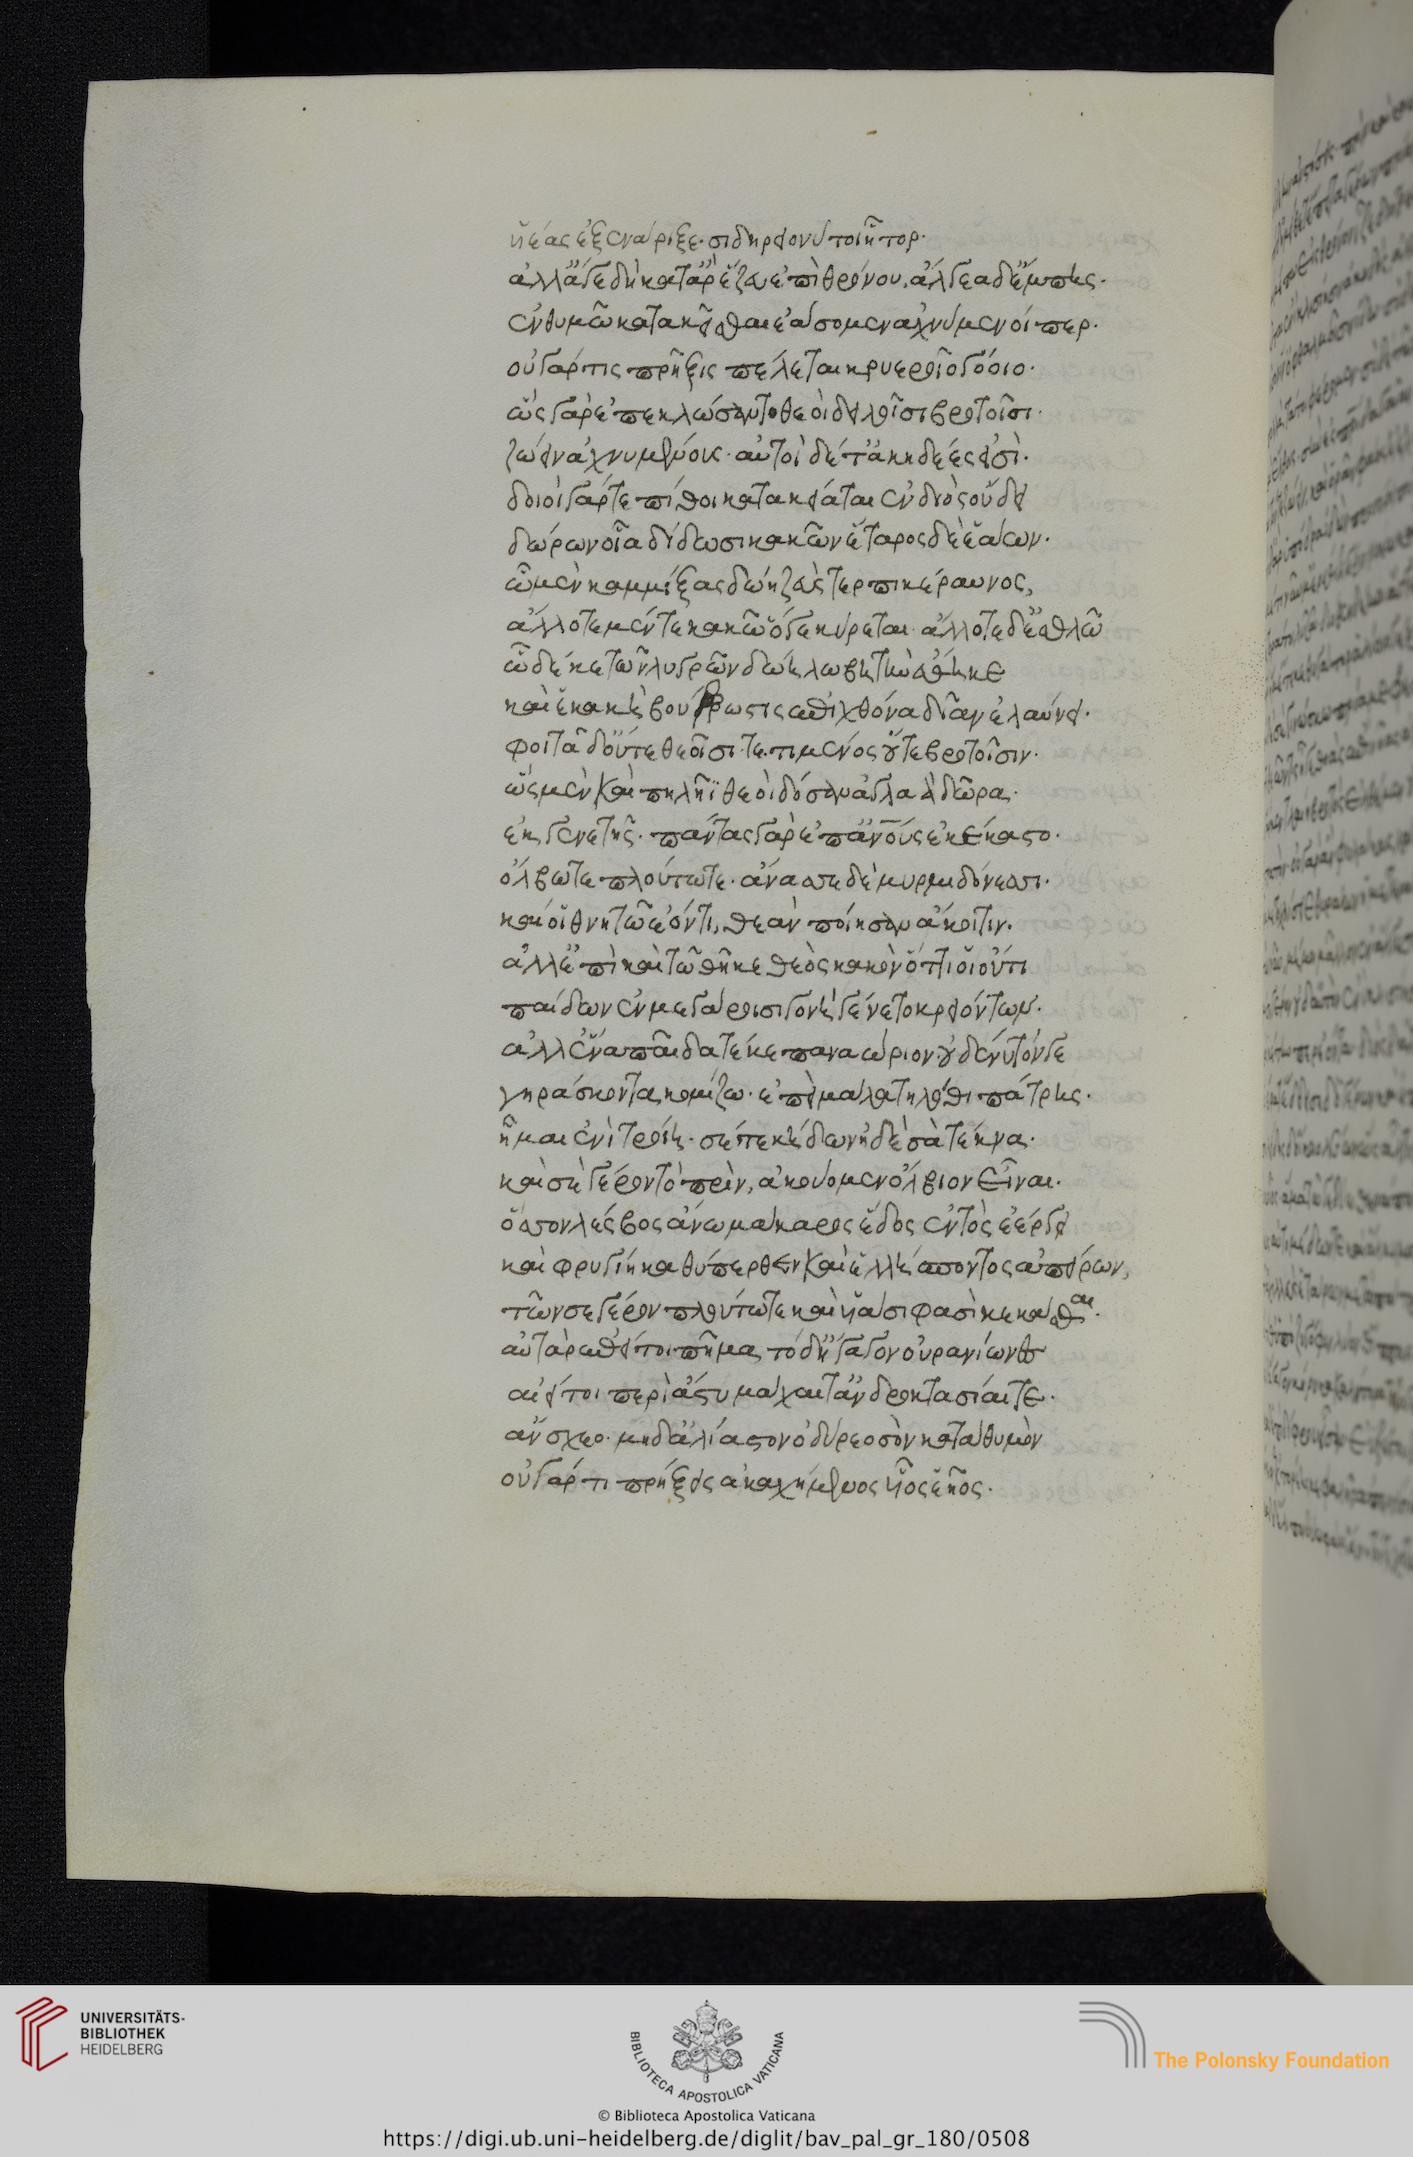 υἱέας ἐξενάριξε· σιδήρειόν νύ τοι ἦτορ·
ἀλλ' ἄγε δὴ κατ' ἄρ' ἕζευ ἐπὶ θρόνου, ἄλγεα δ' ἔμπης·
ἐν θυμῶ κατακεῖσθαι ἐάσομεν ἀχνύμενοί περ·
οὐ γάρ τις πρῆξις πέλεται κρυεροῖο γόοιο·
ὣς γὰρ ἐπεκλώσαντο θεοὶ δειλοῖσι βροτοῖσι·
ζώειν ἀχνυμένοις· αὐτοὶ δέ τ' ἀκηδέες εἰσί·
δοιοὶ γάρ τε πίθοι κατακείαται ἐν διὸς οὔδει
δώρων οἷα δίδωσι κακῶν ἕτερος δὲ ἑάων·
ὧ μὲν καμμίξας δώη ζεὺς τερπικέραυνος,
ἄλλοτε μέν τε κακῶ ὅγε κύρεται· ἄλλοτε δ' ἐσθλῶ
ὧ δέ κε τῶν λυγρῶν δώη λωβητὸν ἔθηκε
καί ἑ κακὴ βούβρωστις ἐπὶ χθόνα δῖαν ἐλαύνει·
φοιτᾶ δ' οὔτε θεοῖσι τετιμένος οὔτε βροτοῖσιν·
ὣς μὲν καὶ πηλῆϊ θεοὶ δόσαν ἀγλαὰ δῶρα·
ἐκ γενετῆς· πάντας γὰρ ἐπ' ἀν̅ο̅υ̅ς ἐκέκαστο·
ὄλβω τε πλούτω τε· ἄνασσε δὲ μυρμιδόνεσσι·
καί οἱ θνητῶ ἐόντι, θεὰν ποίησαν ἄκοιτιν·
ἀλλ' ἐπὶ καὶ τῶ θῆκε θεὸς κακὸν ὅττι οἱ οὔτι
παίδων ἐν μεγάροισι γονὴ γένετο κρειόντων·
ἀλλ' ἕνα παῖδα τέκε παναώριον· οὐδέ νυ τόνγε
γηράσκοντα κομίζω· ἐπεὶ μάλα τηλόθι πάτρης·
ἧμαι ἐνὶ τροίη· σέ τε κήδων ἠδὲ σὰ τέκνα·
καὶ σὲ γέρον τὸ πρὶν, ἀκούομεν ὄλβιον εἶναι·
ὅσσον λέσβος ἄνω μάκαρος ἕδος ἐντὸς ἐέργει
καὶ φρυγίη καθύπερθεν καὶ ἑλλήσποντος ἀπείρων,
τῶν σε γέρον πλούτω τε καὶ υἱάσι φασὶ κεκάσθαι·
αὐτὰρ ἐπεί τοι πῆμα τόδ' ἤγαγον οὐρανίωνες
αἰεί τοι περὶ ἄστυ μάχαι τ' ἀνδροκτασίαι τε·
ἄνσχεο· μηδ' ἀλίαστον ὀδύρεο σὸν κατὰ θυμὸν
οὐ γάρ τι πρήξεις ἀκαχήμενος υἷος ἑῆος·
UNIVERSITÄTS-
BIBLIOTHEK
HEIDELBERG
BIBLIOTECA APOSTOLICA VATICANA
The Polonsky Foundation
© Biblioteca Apostolica Vaticana
https://digi.ub.uni-heidelberg.de/diglit/bav_pal_gr_180/0508